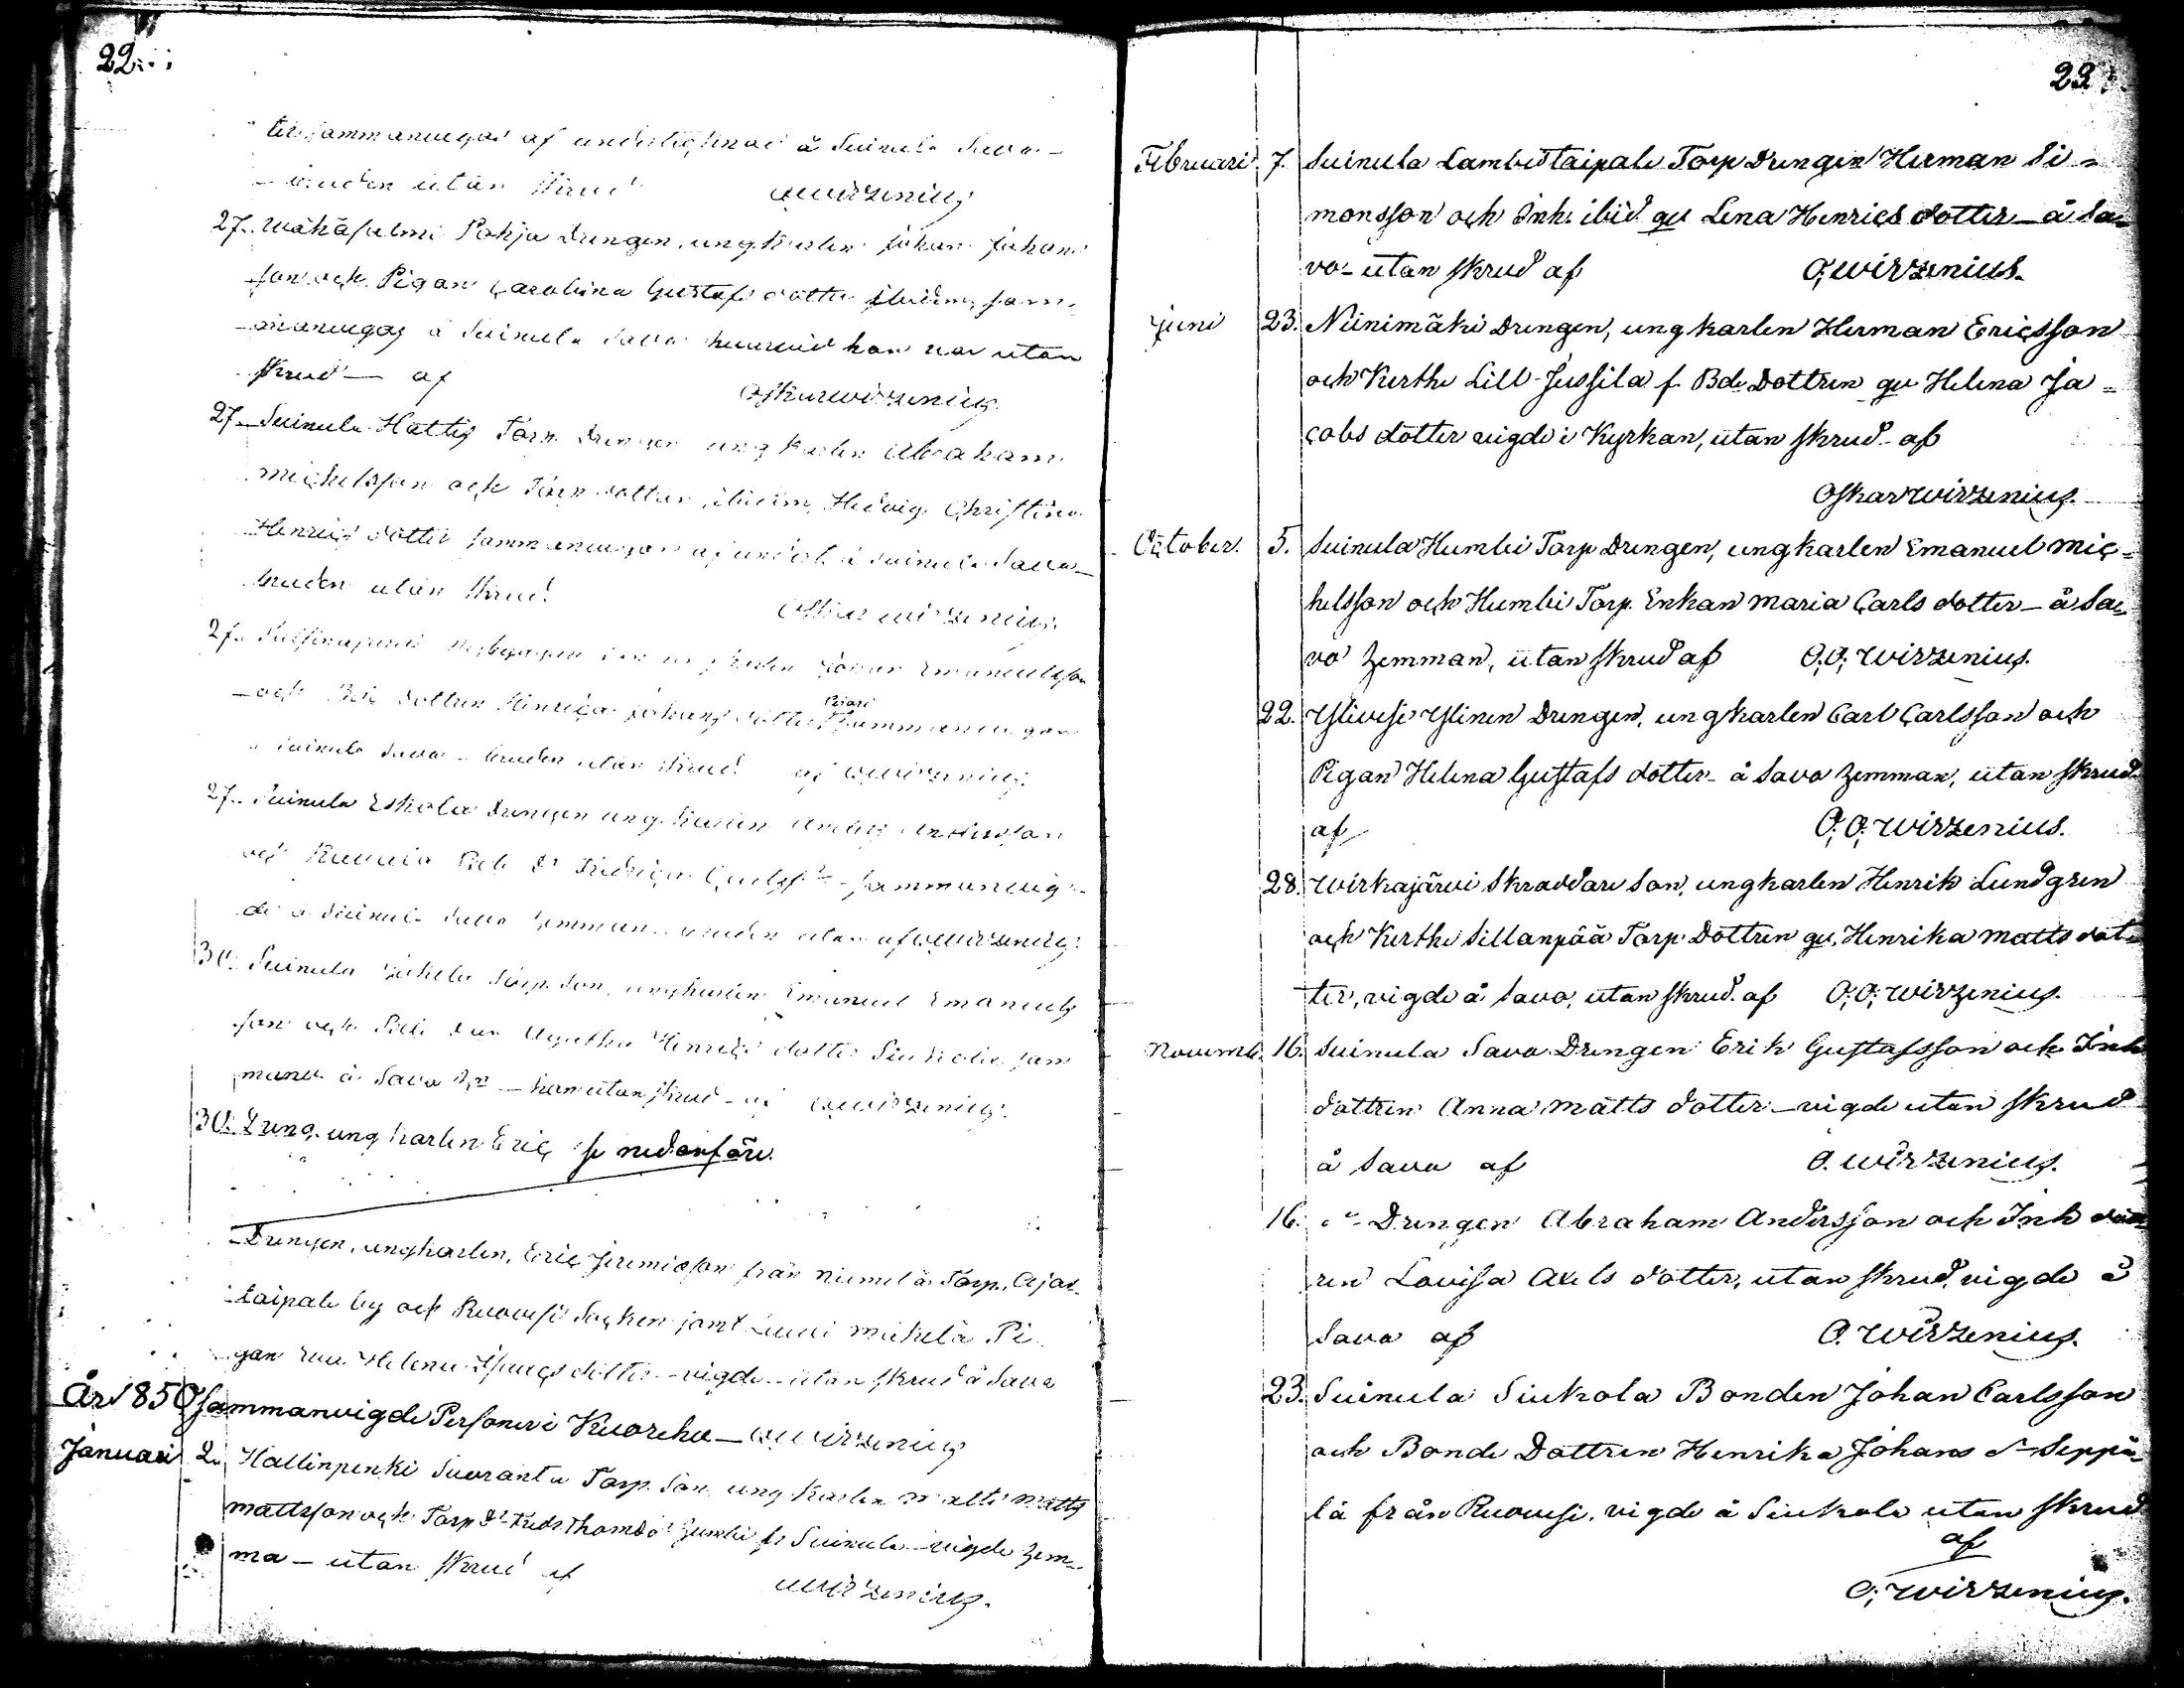 22
ter sammanvigas af undertecknad å Suinula Savo –
– bruden utan skrud O Wirzenius
27. Wähäsalmi Pohja Drengen, ungkarlen Johan Johans
son och Pigan Carolina Gustafs dotter ibidem, sam-
manvigas å Suinula Savo hvarvid hon var utan
skrud – af Oskar Wirzenius
27. Suinula Hattis Torp Drengen ungkarlen Abraham
Michelsson och Torp dottren, ibidem, Hedvig Christina
Henrics dotter sammanvigas af undert. å Suinula Savo –
bruden utan skrud. Oskar Wirzenius.
27. ungkarlen Emanuelsson
– och dottren Henrica Johans dotter Peiari sammanvigas
å Suinula Savo – bruden utan skrud af O Wirzenius.
27. Suinula Eskola Drengen ungkarlen Anders Andersson
och sammanvig-
de å Suinula Savo hemman bruden utan af O Wirzenius.
30. Suinula Torp. Son, ungkarlen Emanuel Emanuels
son och Agatha Henrics dotter Siukola sam
manv. å Savo – hon utan skrud – af O Wirzenius.
30. Dreng. ungkarlen Eric se nedanföre.
Drengen, ungkarlen, Eric Jeremiasson från Niemelä Torp. Ajos-
taipale by och Ruovesi Socken jemt Mickelä Pi
gan Eva Helena dotter – vigde – utan skrud å Savo
År 1850 Sammanvigde Personer i Kuorehv – O Wirzenius
Januari 2. Hallinpenki Suoranta Torp. Son ungkarlen Matts Matts
Mattsson och Torp Dr Fredr. Thoms dr Humbi fr Suinula – vigde hem-
ma – utan skrud af Wirzenius.
23
Februari 7. Suinula Lambistaipale Torp Drengen Herman Si =
monsson och Inh. ibid qu Lena Henrics dotter – å Sa-
vo – utan skrud af O, Wirzenius.
Juni 23. Niinimäki Drengen, ungkarlen Herman Ericsson
och Kerthe Lill-Jussila f. Bde Dottren qv Helena Ja =
cobs dotter vigde i Kyrkan, utan skrud af
Oskar Wirzenius.
October. 5. Suinula Humbi Torp Drengen, ungkarlen Emanuel Mic =
helsson och Humbi Torp. Enkan Maria Carls dotter – å Sa-
vo hemman, utan skrud af O, O, Wirzenius.
22. Yliveje Ylinen Drengen, ungkarlen Carl Carlsson och
Pigan Helena Gustafs dotter – å Savo hemman, utan skrud
af O, O, Wirzenius.
28. Wirkajärvi Skraddare Son, ungkarlen Henrik Lundgren
och Kerthe Sillanpää Torp. Dottren qv. Henrika Matts dot-
ter, vigde å Savo, utan skrud. af O, O, Wirzenius.
Novemb. 16. Suinula Savo Drengen Erik Gustafsson och Inh
dottren Anna Matts dotter – vigde utan skrud
å Savo af O. Wirzenius.
16. Drengen Abraham Andersson och Inh dott
ren Lovisa Axels dotter, utan skrud, vigde å
Savo af O. Wirzenius.
23. Suinula Siukola Bonden Johan Carlsson
och Bonde Dottren Henrika Johans dr Seppä-
lä från Ruovesi, vigde å Siukola utan skrud
af
O, Wirzenius.